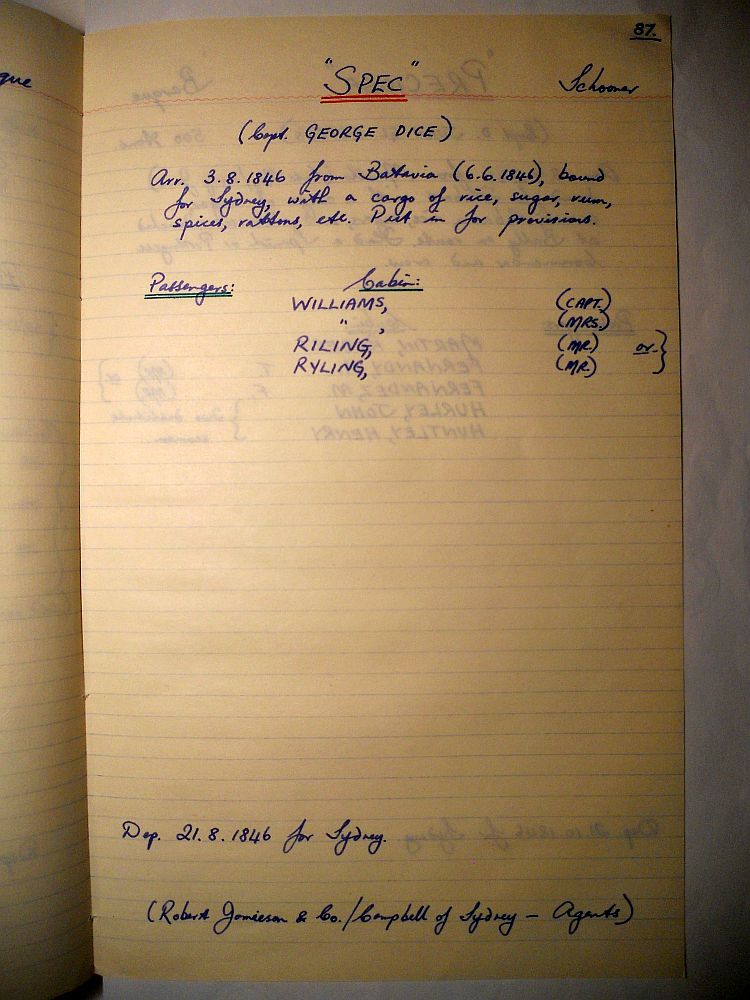 87.
"SPEC" Schooner
(Capt. GEORGE DICE)
Arr. 3.8.1846 from Batavia (6.6.1846), bound
for Sydney, with a cargo of rice, sugar, rum,
spices, rattons, etc. Put in for provisions.
Passengers: Cabin:
WILLIAMS, (CAPT.)
" , (MRS.)
RILING, (MR.) or }
RYLING, (MR.)
Dep. 21.8.1846 for Sydney.
(Robert Jamieson & Co./Campbell of Sydney – Agents)